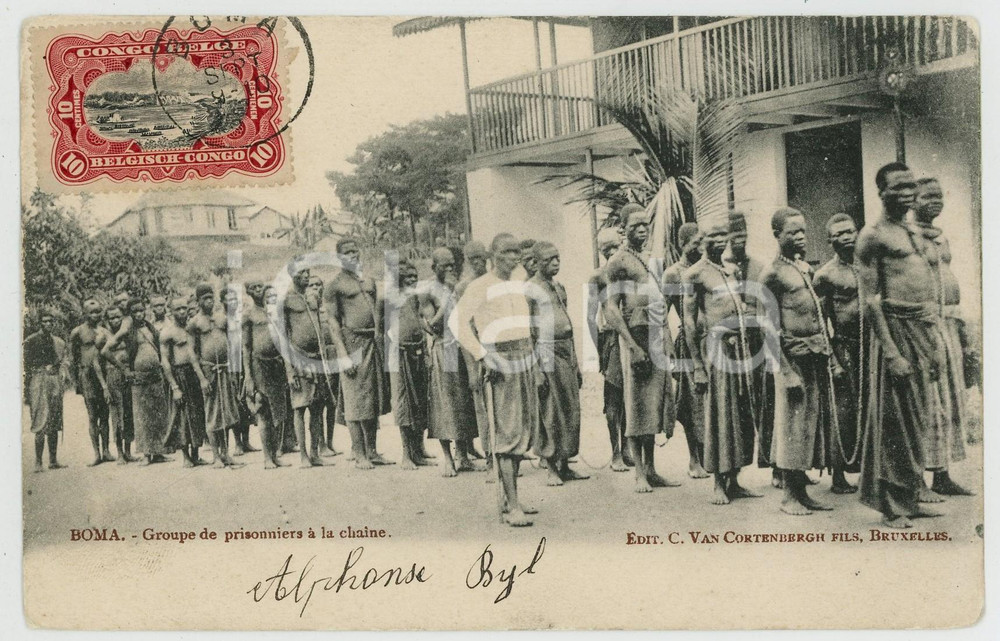 CONGO BELGE
10 CENTIMES
10 CENTIEMEN
10 BELGISCH-CONGO 10
BOMA
icharta
BOMA. - Groupe de prisonniers à la chaîne.
EDIT. C. VAN CORTENBERGH FILS, BRUXELLES.
Alphonse Byl